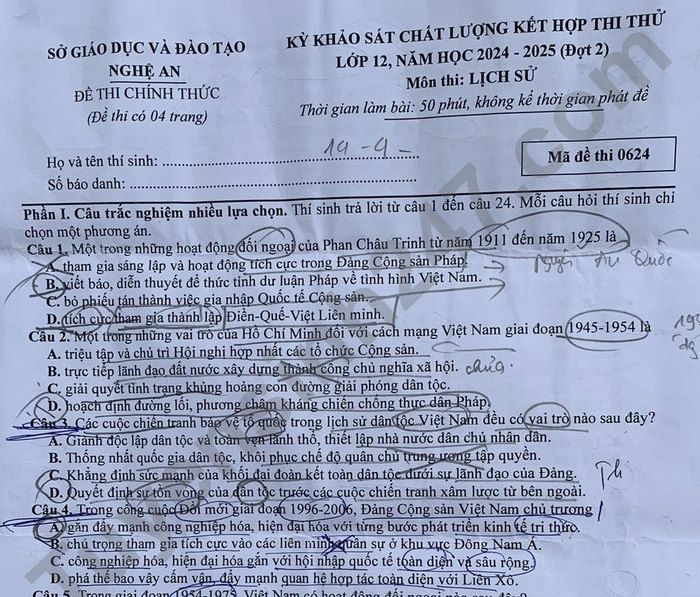 SỞ GIÁO DỤC VÀ ĐÀO TẠO
NGHỆ AN
ĐỀ THI CHÍNH THỨC
(Đề thi có 04 trang)
KỲ KHẢO SÁT CHẤT LƯỢNG KẾT HỢP THI THỬ
LỚP 12, NĂM HỌC 2024 - 2025 (Đợt 2)
Môn thi: LỊCH SỬ
Thời gian làm bài: 50 phút, không kể thời gian phát đề
19 - 4 -
Họ và tên thí sinh:
Số báo danh:
Mã đề thi 0624
Phần I. Câu trắc nghiệm nhiều lựa chọn. Thí sinh trả lời từ câu 1 đến câu 24. Mỗi câu hỏi thí sinh chỉ
chọn một phương án.
Câu 1. Một trong những hoạt động đối ngoại của Phan Châu Trinh từ năm 1911 đến năm 1925 là
A. tham gia sáng lập và hoạt động tích cực trong Đảng Cộng sản Pháp.
B. viết báo, diễn thuyết để thức tỉnh dư luận Pháp về tình hình Việt Nam.
C. bỏ phiếu tán thành việc gia nhập Quốc tế Cộng sản.
D. tích cực tham gia thành lập Điền-Quế-Việt Liên minh.
Câu 2. Một trong những vai trò của Hồ Chí Minh đối với cách mạng Việt Nam giai đoạn 1945-1954 là
A. triệu tập và chủ trì Hội nghị hợp nhất các tổ chức Cộng sản.
B. trực tiếp lãnh đạo đất nước xây dựng thành công chủ nghĩa xã hội. chưa
C. giải quyết tình trạng khủng hoảng con đường giải phóng dân tộc.
D. hoạch định đường lối, phương châm kháng chiến chống thực dân Pháp.
Câu 3. Các cuộc chiến tranh bảo vệ tổ quốc trong lịch sử dân tộc Việt Nam đều có vai trò nào sau đây?
A. Giành độc lập dân tộc và toàn vẹn lãnh thổ, thiết lập nhà nước dân chủ nhân dân.
B. Thống nhất quốc gia dân tộc, khôi phục chế độ quân chủ trung ương tập quyền.
C. Khẳng định sức mạnh của khối đại đoàn kết toàn dân tộc dưới sự lãnh đạo của Đảng.
D. Quyết định sự tồn vong của dân tộc trước các cuộc chiến tranh xâm lược từ bên ngoài.
Câu 4. Trong công cuộc Đổi mới giai đoạn 1996-2006, Đảng Cộng sản Việt Nam chủ trương
A. gắn đẩy mạnh công nghiệp hóa, hiện đại hóa với từng bước phát triển kinh tế tri thức.
B. chú trọng tham gia tích cực vào các liên minh quân sự ở khu vực Đông Nam Á.
C. công nghiệp hóa, hiện đại hóa gắn với hội nhập quốc tế toàn diện và sâu rộng.
D. phá thế bao vây cấm vận, đẩy mạnh quan hệ hợp tác toàn diện với Liên Xô.
Câu 5. Trong giai đoạn 1954-1975, Việt Nam có hoạt động đối ngoại nào sau đây?